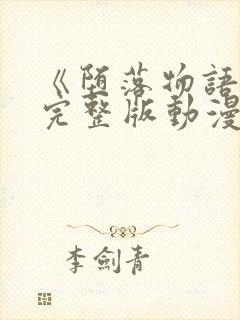 《堕落物語
完整版動漫
李劍青